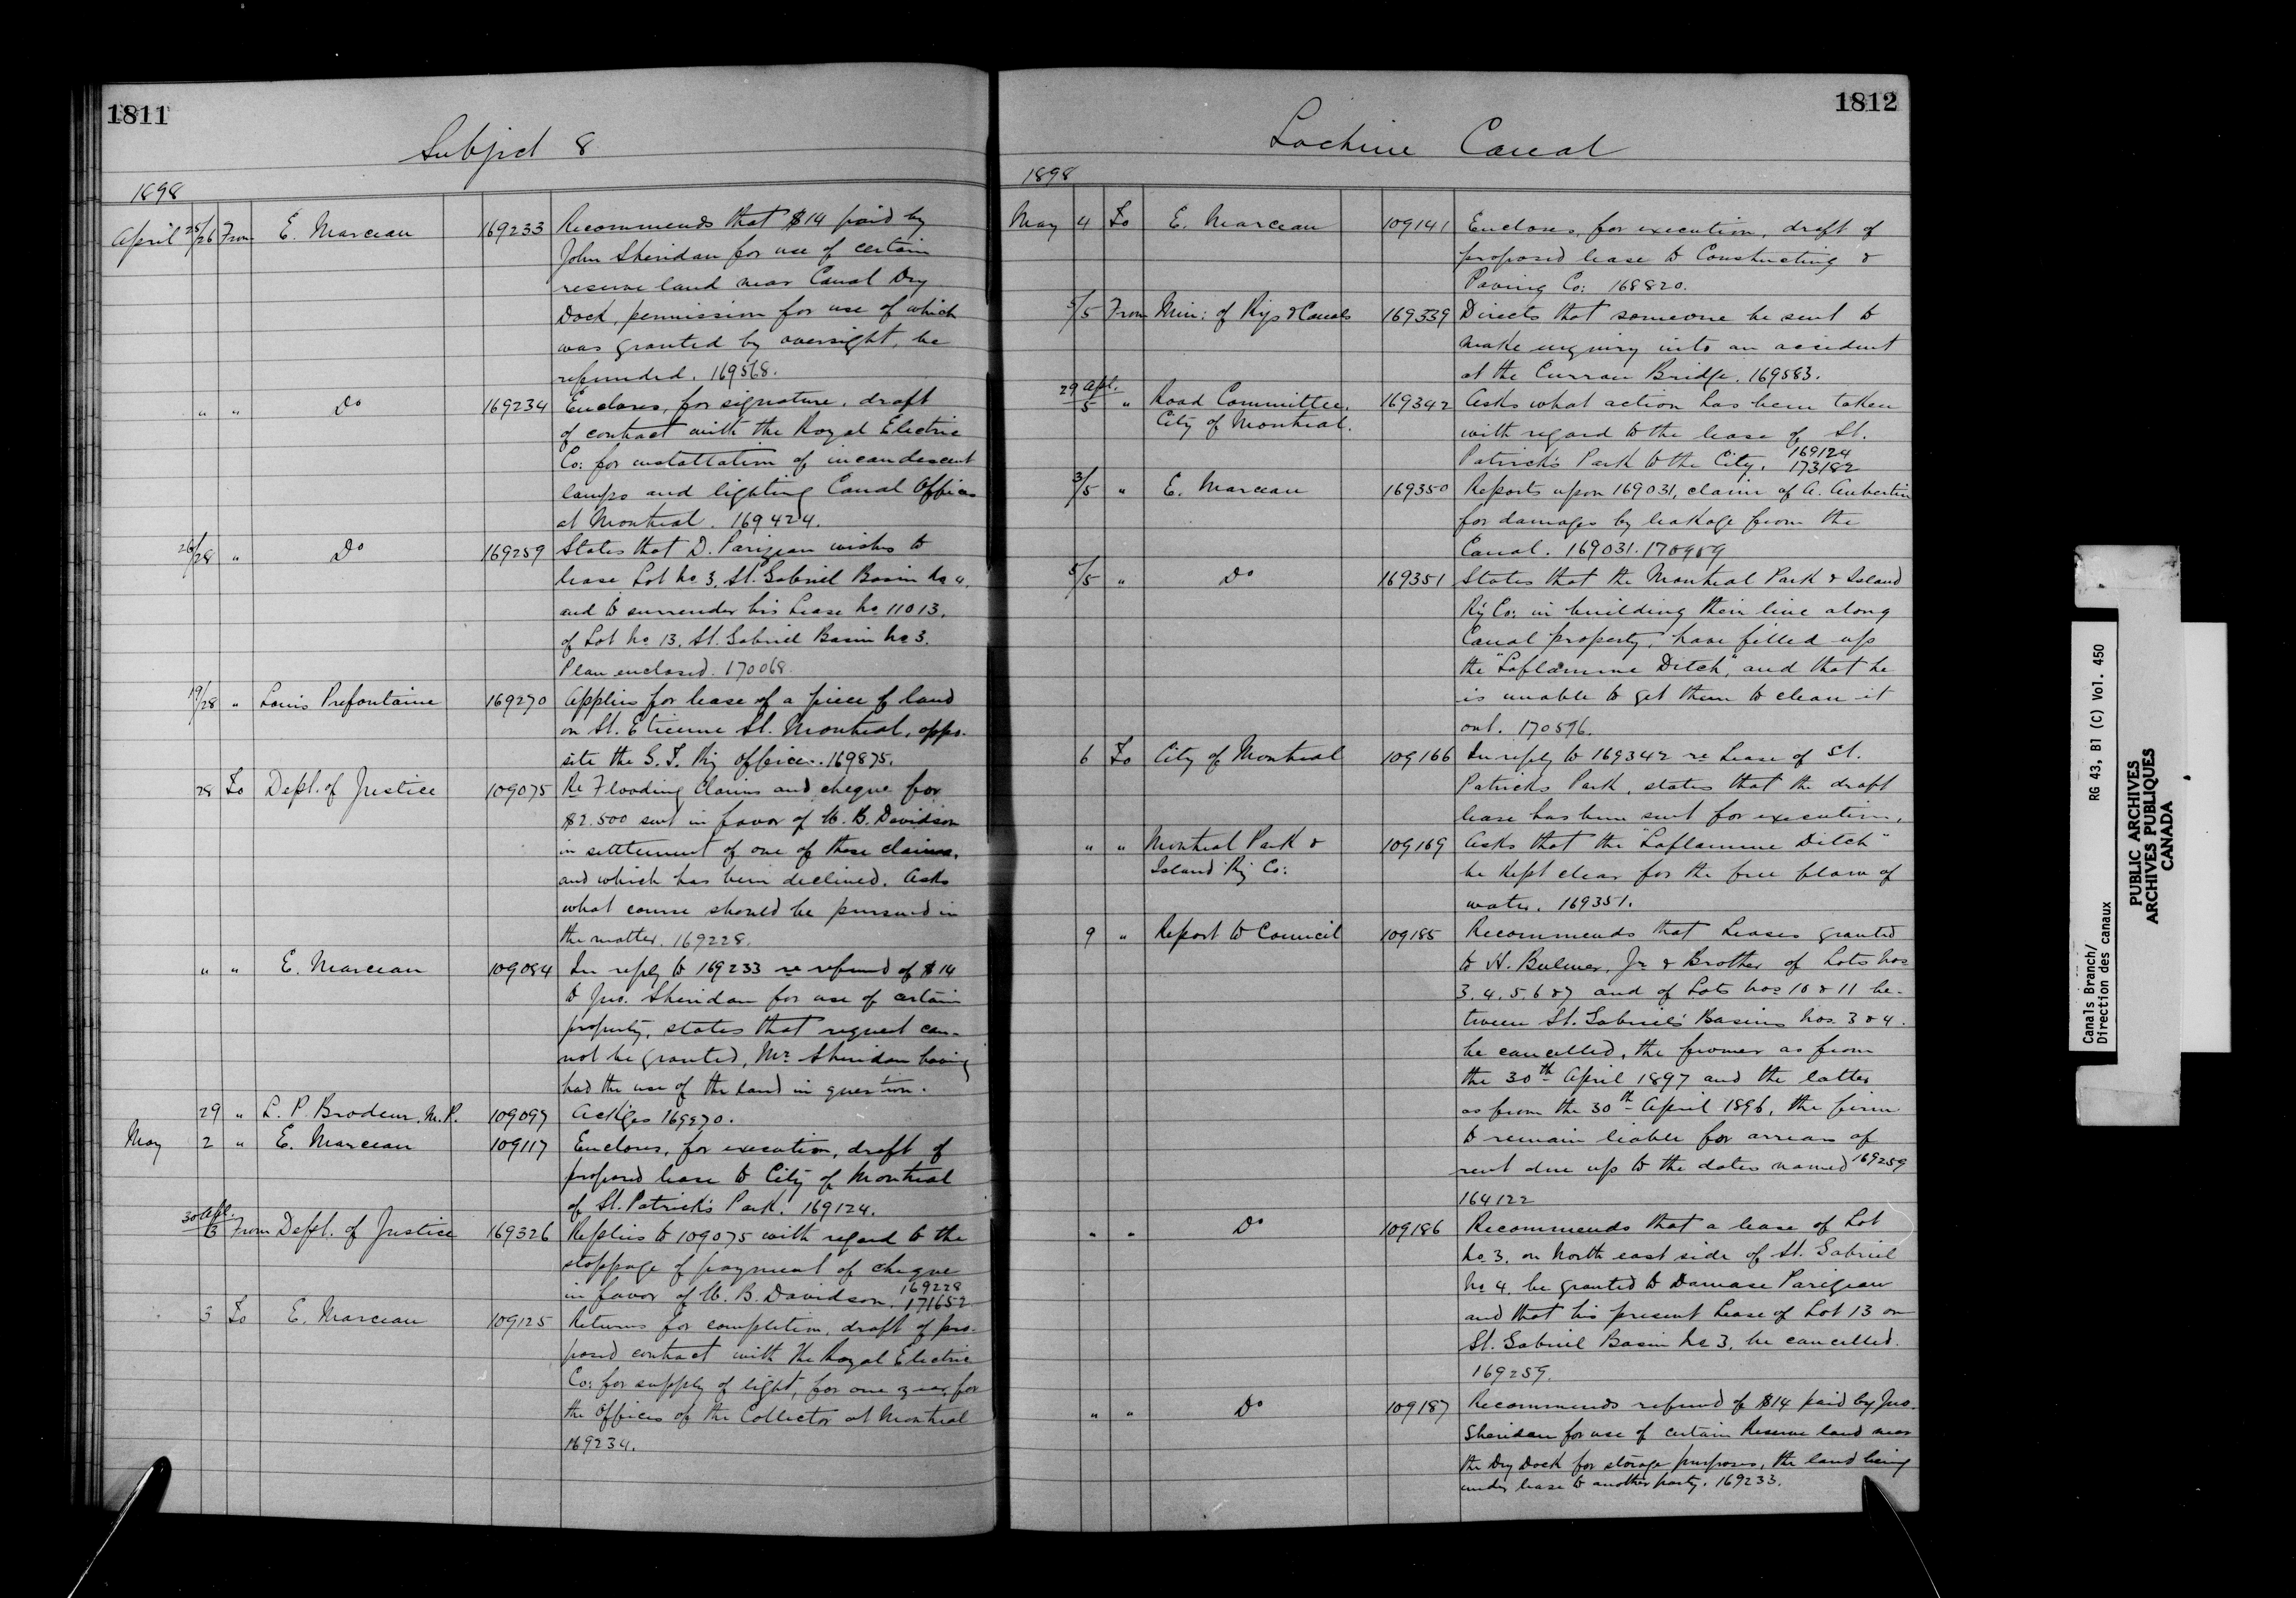 1811
Subject 8
1898
April 25/26 From E. Marceau 169233 Recommends that $14 paid by
John Sheridan for use of certain
reserve land near Canal Dry
Dock, permission for use of which
was granted by oversight, be
refunded. 169568.
" " Do 169234 Encloses, for signature, draft
of contract with the Royal Electric
Co: for installation of incandescent
lamps and lighting Canal Offices
at Montreal. 169424.
26/28 " Do 169259 States that D. Parizeau wishes to
lease Lot No 3, St. Gabriel Basin No 4,
and to surrender his Lease No 11013,
of Lot No 13, St. Gabriel Basin No 3.
Plan enclosed. 170068.
19/28 " Louis Prefontaine 169270 Applies for lease of a piece of land
on St. Etienne St. Montreal, oppo-
site the G. T. Ry offices. 169875.
28 To Dept. of Justice 109075 Re Flooding Claims and cheque for
$2.500 sent in favor of W. B. Davidson
in settlement of one of these claims,
and which has been declined. Asks
what course should be pursued in
the matter. 169228.
" " E. Marceau 109084 In reply to 169233 re refund of $14
to Jno. Sheridan for use of certain
property, states that request can-
not be granted, Mr Sheridan having
had the use of the land in question.
29 " L. P. Brodeur, M.P. 109097 Ack'ges 169270.
May 2 " E. Marceau 109117 Encloses, for execution, draft of
proposed lease to City of Montreal
of St. Patrick's Park. 169124.
30 Apl./3 From Dept. of Justice 169326 Replies to 109075 with regard to the
stoppage of payment of cheque
in favor of W. B. Davidson. 169228 171652
3 To E. Marceau 109125 Returns for completion, draft of pro-
posed contract with the Royal Electric
Co: for supply of light, for one year, for
the Offices of the Collector at Montreal
169234.
1812
Lachine Canal
1898
May 4 To E. Marceau 109141 Encloses, for execution, draft of
proposed lease to Constructing &
Paving Co: 168820.
5/5 From Min: of Rys & Canals 169339 Directs that someone be sent to
make enquiry into an accident
at the Curran Bridge. 169583.
29 Apl./5 " Road Committee, 169342 Asks what action has been taken
City of Montreal. with regard to the lease of St.
Patrick's Park to the City. 169124 173182
3/5 " E. Marceau 169350 Reports upon 169031, claim of A. Aubertin
for damages by leakage from the
Canal. 169031.
5/5 " Do 169351 States that the Montreal Park & Island
Ry Co: in building their line along
Canal property, have filled up
the "Laflamme Ditch", and that he
is unable to get them to clean it
out. 170596.
6 To City of Montreal 109166 In reply to 169342 re Lease of St.
Patricks Park, states that the draft
lease has been sent for execution.
" " Montreal Park & 109169 Asks that the "Laflamme Ditch"
Island Ry Co: be kept clear for the free flow of
water. 169351.
9 " Report to Council 109185 Recommends that Leases granted
to H. Bulmer, Jr. & Brother of Lots Nos
3. 4. 5. 6 & 7 and of Lots Nos 10 & 11 be-
tween St. Gabriel's Basins Nos. 3 & 4.
be cancelled, the former as from
the 30th April 1897 and the latter
as from the 30th April 1896, the firm
to remain liable for arrears of
rent due up to the dates named 169259
164122
" " Do 109186 Recommends that a lease of Lot
No. 3, on North east side of St. Gabriel
No 4. be granted to Damase Parizeau
and that his present Lease of Lot 13 on
St. Gabriel Basin No 3, be cancelled.
169259.
" " Do 109187 Recommends refund of $14 paid by Jno.
Sheridan for use of certain Reserve land near
the Dry Dock for storage purposes, the land being
under lease to another party. 169233.
Canals Branch/ RG 43, B1 (C) Vol. 450
Direction des canaux
PUBLIC ARCHIVES
ARCHIVES PUBLIQUES
CANADA